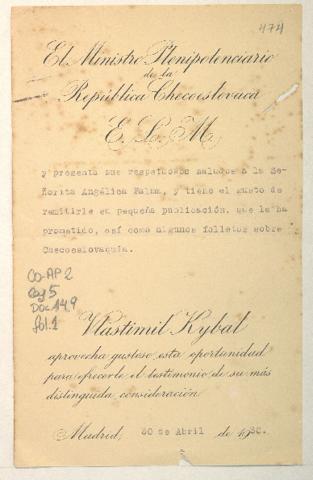 474
El Ministro Plenipotenciario
de la
República Checoeslovaca
E. L. M.
y presenta sus respetuosos saludos a la Se-
ñorita Angélica Palma, y tiene el gusto de
remitirle su pequeña publicación, que le ha
prometido, así como algunos folletos sobre
Checoeslovaquia.
CO-AP2
Caj 5
Doc 14.9
fol.1
Vlastimil Kybal
aprovecha gustoso esta oportunidad
para ofrecerle el testimonio de su más
distinguida consideración
Madrid, 30 de Abril de 1930.